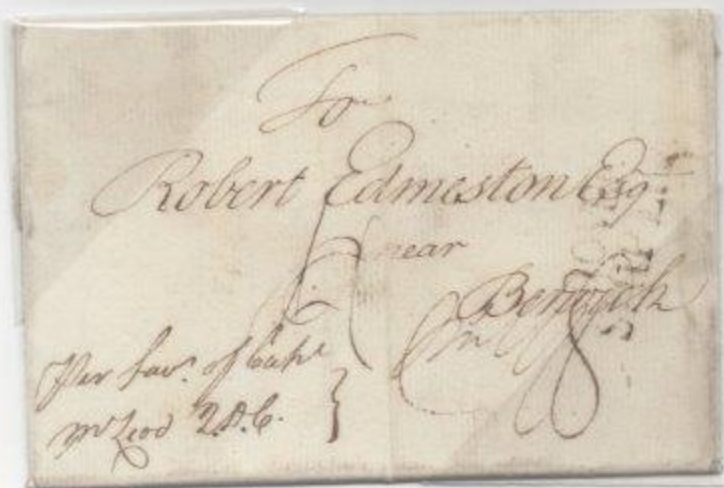 For
Robert Edmeston Esqr.
near
Berwick
Per favr. of Capt
McLeod 2.D.C.